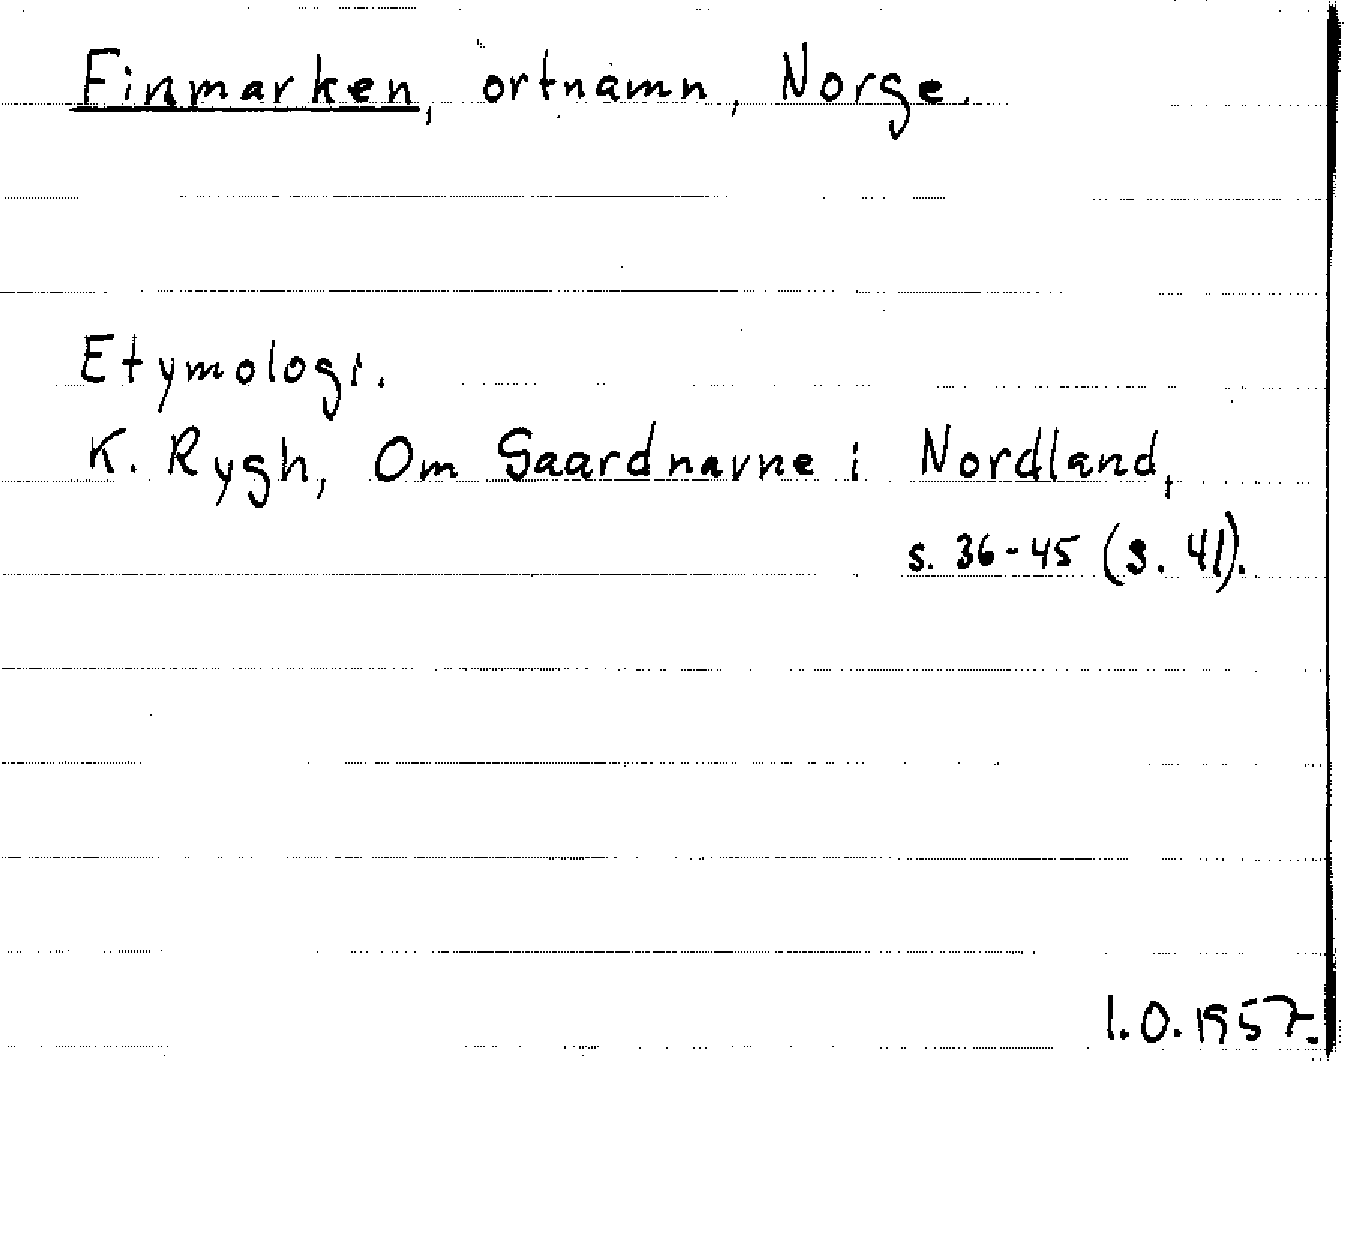 Finmarken, ortnamn, Norge.
Etymologi.
K. Rygh, Om Gaardnavne i Nordland,
s. 36-45 (s. 41).
I.O. 1957.